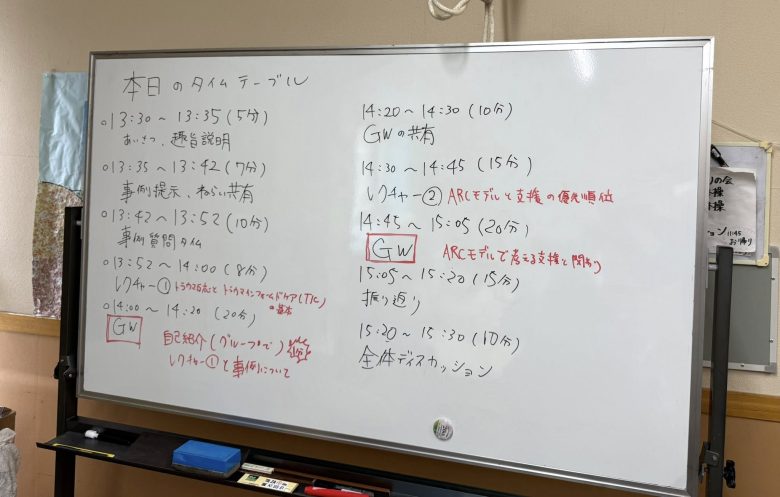 本日のタイムテーブル
13:30 ~ 13:35 (5分)
あいさつ、趣旨説明
13:35 ~ 13:42 (7分)
事例提示、ねらい共有
13:42 ~ 13:52 (10分)
事例質問タイム
13:52 ~ 14:00 (8分)
レクチャー① トラウマ反応とトラウマインフォームドケア(TIC)
の基本
14:00 ~ 14:20 (20分)
GW
自己紹介(グループで)
レクチャー①と事例について
14:20 ~ 14:30 (10分)
GWの共有
14:30 ~ 14:45 (15分)
レクチャー② ARCモデルと支援の優先順位
14:45 ~ 15:05 (20分)
GW ARCモデルで考える支援と関わり
15:05 ~ 15:20 (15分)
振り返り
15:20 ~ 15:30 (10分)
全体ディスカッション
りの会
体操
ション 11:45
お帰り